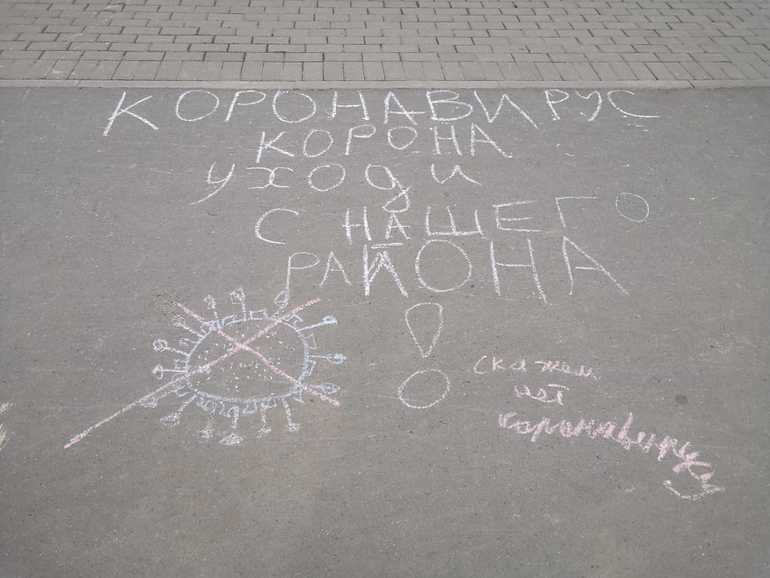 КОРОНАВИРУС
КОРОНА
УХОДИ
С НАШЕГО
РАЙОНА
!
Скажем
нет
коронавирусу